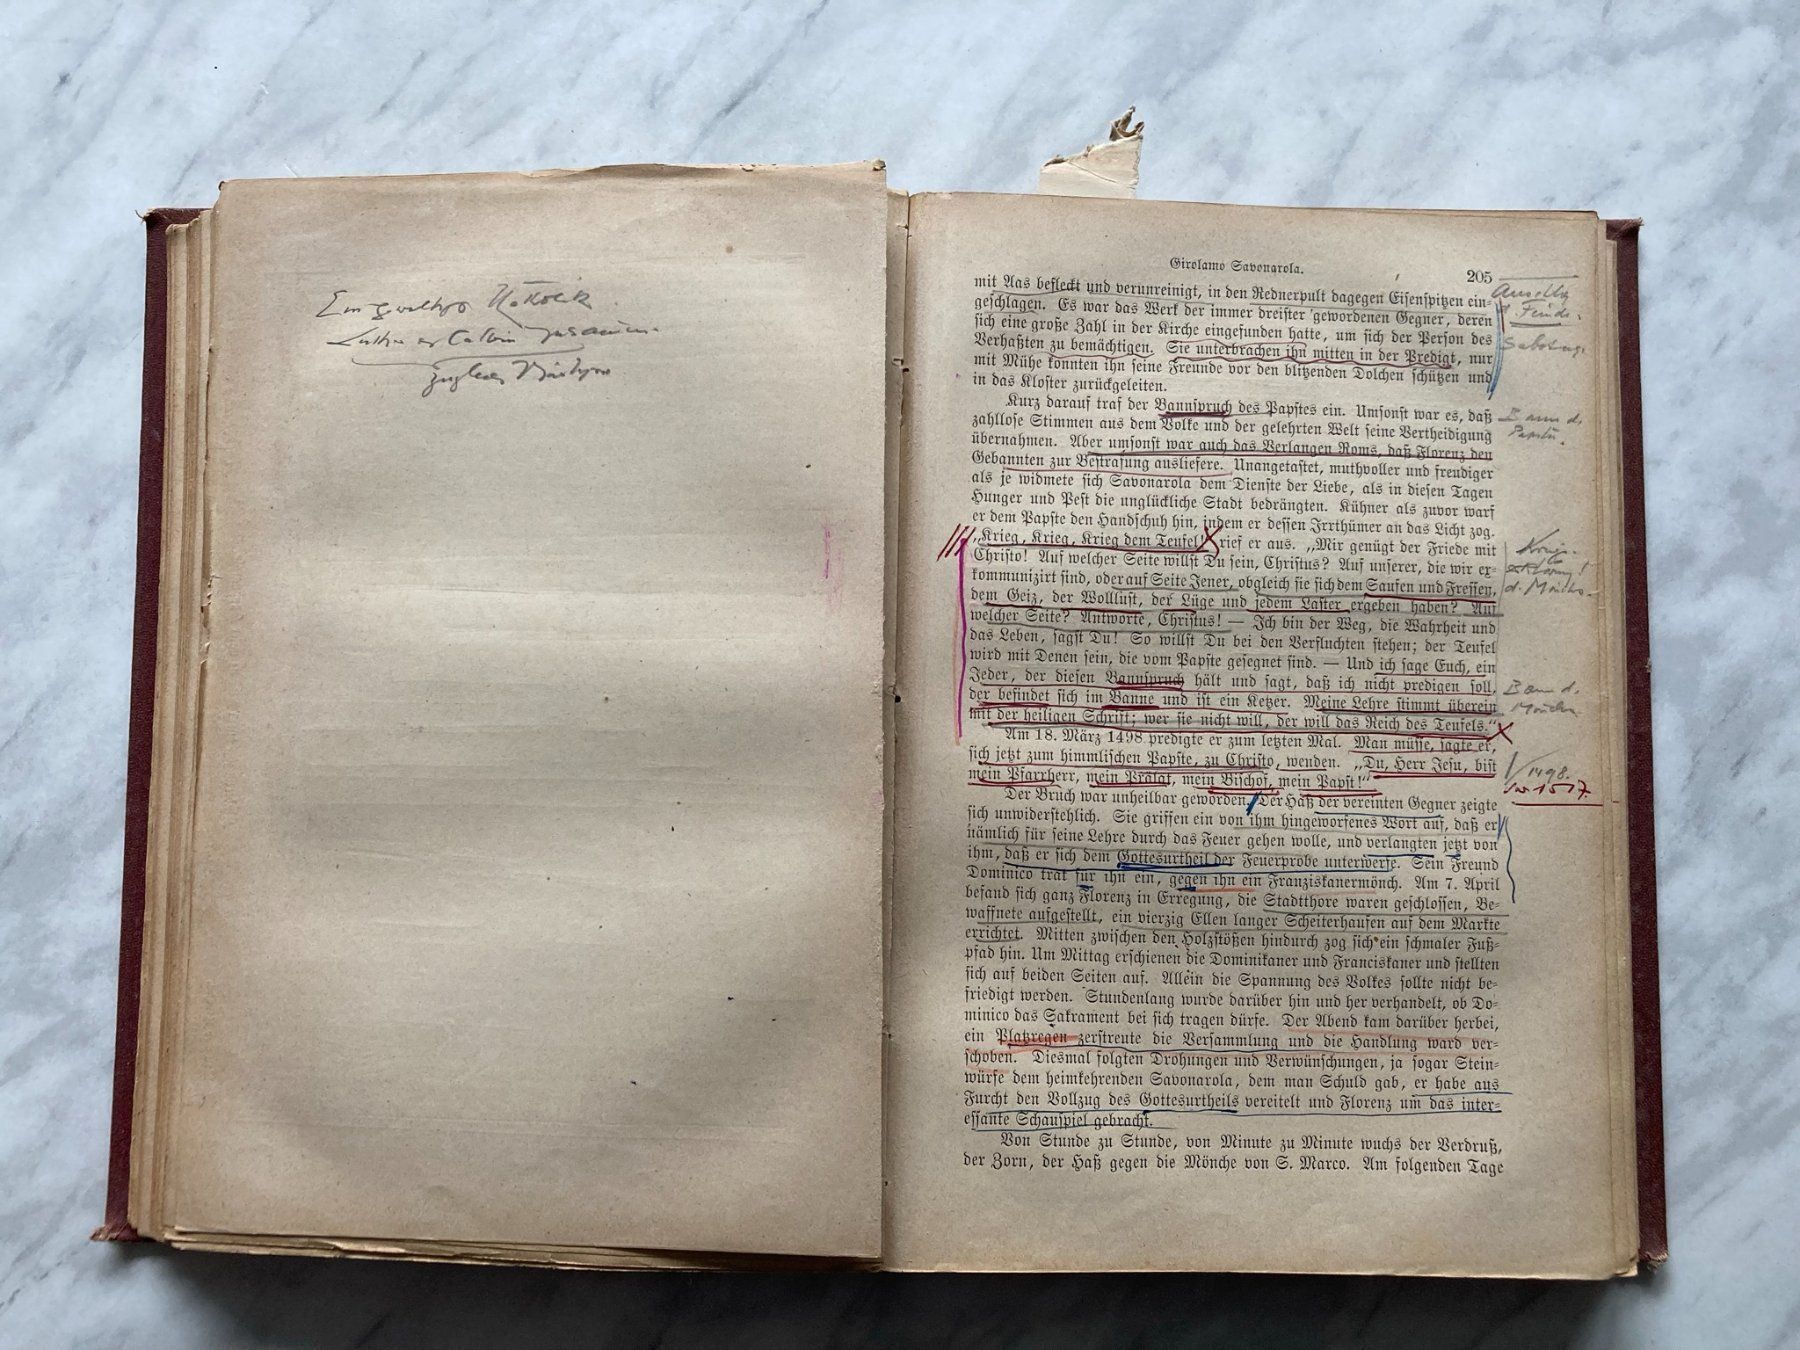 Ein gewaltiger Katholik
Luther u Calvin zusammen.
zugleich Märtyrer
Girolamo Savonarola.
205
mit Aas befleckt und verunreinigt, in den Rednerpult dagegen Eisenspitzen ein-
geschlagen. Es war das Werk der immer dreister gewordenen Gegner, deren
sich eine große Zahl in der Kirche eingefunden hatte, um sich der Person des
Verhaßten zu bemächtigen. Sie unterbrachen ihn mitten in der Predigt, nur
mit Mühe konnten ihn seine Freunde vor den blitzenden Dolchen schützen und
in das Kloster zurückgeleiten.
d. Feinde.
Sabotage
Kurz darauf traf der Bannspruch des Papstes ein. Umsonst war es, daß
zahllose Stimmen aus dem Volke und der gelehrten Welt seine Vertheidigung
übernahmen. Aber umsonst war auch das Verlangen Roms, daß Florenz den
Gebannten zur Bestrafung ausliefere. Unangetastet, muthvoller und freudiger
als je widmete sich Savonarola dem Dienste der Liebe, als in diesen Tagen
Hunger und Pest die unglückliche Stadt bedrängten. Kühner als zuvor warf
er dem Papste den Handschuh hin, indem er dessen Irrthümer an das Licht zog.
„Krieg, Krieg, Krieg dem Teufel!“ rief er aus. „Mir genügt der Friede mit
Christo! Auf welcher Seite willst Du sein, Christus? Auf unserer, die wir ex-
kommunizirt sind, oder auf Seite Jener, obgleich sie sich dem Saufen und Fressen,
dem Geiz, der Wollust, der Lüge und jedem Laster ergeben haben? Auf
welcher Seite? Antworte, Christus! — Ich bin der Weg, die Wahrheit und
das Leben, sagst Du! So willst Du bei den Verfluchten stehen; der Teufel
wird mit Denen sein, die vom Papste gesegnet sind. — Und ich sage Euch, ein
Jeder, der diesen Bannspruch hält und sagt, daß ich nicht predigen soll,
der befindet sich im Banne und ist ein Ketzer. Meine Lehre stimmt überein
mit der heiligen Schrift; wer sie nicht will, der will das Reich des Teufels.“
Bann d.
Papstes.
d. Mönchs.
Bann d.
Mönchs
Am 18. März 1498 predigte er zum letzten Mal. Man müsse, sagte er,
sich jetzt zum himmlischen Papste, zu Christo, wenden. „Du, Herr Jesu, bist
mein Pfarrherr, mein Prälat, mein Bischof, mein Papst!“
1498.
vor 1517.
Der Bruch war unheilbar geworden. Der Haß der vereinten Gegner zeigte
sich unwiderstehlich. Sie griffen ein von ihm hingeworfenes Wort auf, daß er
nämlich für seine Lehre durch das Feuer gehen wolle, und verlangten jetzt von
ihm, daß er sich dem Gottesurtheil der Feuerprobe unterwerfe. Sein Freund
Dominico trat für ihn ein, gegen ihn ein Franziskanermönch. Am 7. April
befand sich ganz Florenz in Erregung, die Stadtthore waren geschlossen, Be-
waffnete aufgestellt, ein vierzig Ellen langer Scheiterhaufen auf dem Markte
errichtet. Mitten zwischen den Holzstößen hindurch zog sich ein schmaler Fuß-
pfad hin. Um Mittag erschienen die Dominikaner und Franciskaner und stellten
sich auf beiden Seiten auf. Allein die Spannung des Volkes sollte nicht be-
friedigt werden. Stundenlang wurde darüber hin und her verhandelt, ob Do-
minico das Sakrament bei sich tragen dürfe. Der Abend kam darüber herbei,
ein Platzregen zerstreute die Versammlung und die Handlung ward ver-
schoben. Diesmal folgten Drohungen und Verwünschungen, ja sogar Stein-
würfe dem heimkehrenden Savonarola, dem man Schuld gab, er habe aus
Furcht den Vollzug des Gottesurtheils vereitelt und Florenz um das inter-
essante Schauspiel gebracht.
Von Stunde zu Stunde, von Minute zu Minute wuchs der Verdruß,
der Zorn, der Haß gegen die Mönche von S. Marco. Am folgenden Tage